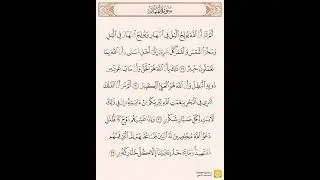 سُورَةُ لُقْمَانَ
أَلَمْ تَرَ أَنَّ ٱللَّهَ يُولِجُ ٱلَّيْلَ فِى ٱلنَّهَارِ وَيُولِجُ ٱلنَّهَارَ فِى ٱلَّيْلِ
وَسَخَّرَ ٱلشَّمْسَ وَٱلْقَمَرَ كُلٌّ يَجْرِىٓ إِلَىٰٓ أَجَلٍ مُّسَمًّى وَأَنَّ ٱللَّهَ بِمَا
تَعْمَلُونَ خَبِيرٌ ٢٩ ذَٰلِكَ بِأَنَّ ٱللَّهَ هُوَ ٱلْحَقُّ وَأَنَّ مَا يَدْعُونَ مِن
دُونِهِ ٱلْبَٰطِلُ وَأَنَّ ٱللَّهَ هُوَ ٱلْعَلِىُّ ٱلْكَبِيرُ ٣٠ أَلَمْ تَرَ أَنَّ ٱلْفُلْكَ
تَجْرِى فِى ٱلْبَحْرِ بِنِعْمَتِ ٱللَّهِ لِيُرِيَكُم مِّنْ ءَايَٰتِهِۦٓ إِنَّ فِى
ذَٰلِكَ لَءَايَٰتٍ لِّكُلِّ صَبَّارٍ شَكُورٍ ٣١ وَإِذَا غَشِيَهُم مَّوْجٌ كَٱلظُّلَلِ
دَعَوُا۟ ٱللَّهَ مُخْلِصِينَ لَهُ ٱلدِّينَ فَلَمَّا نَجَّىٰهُمْ إِلَى ٱلْبَرِّ فَمِنْهُم
مُّقْتَصِدٌ وَمَا يَجْحَدُ بِـَٔايَٰتِنَآ إِلَّا كُلُّ خَتَّارٍ كَفُورٍ ٣٢